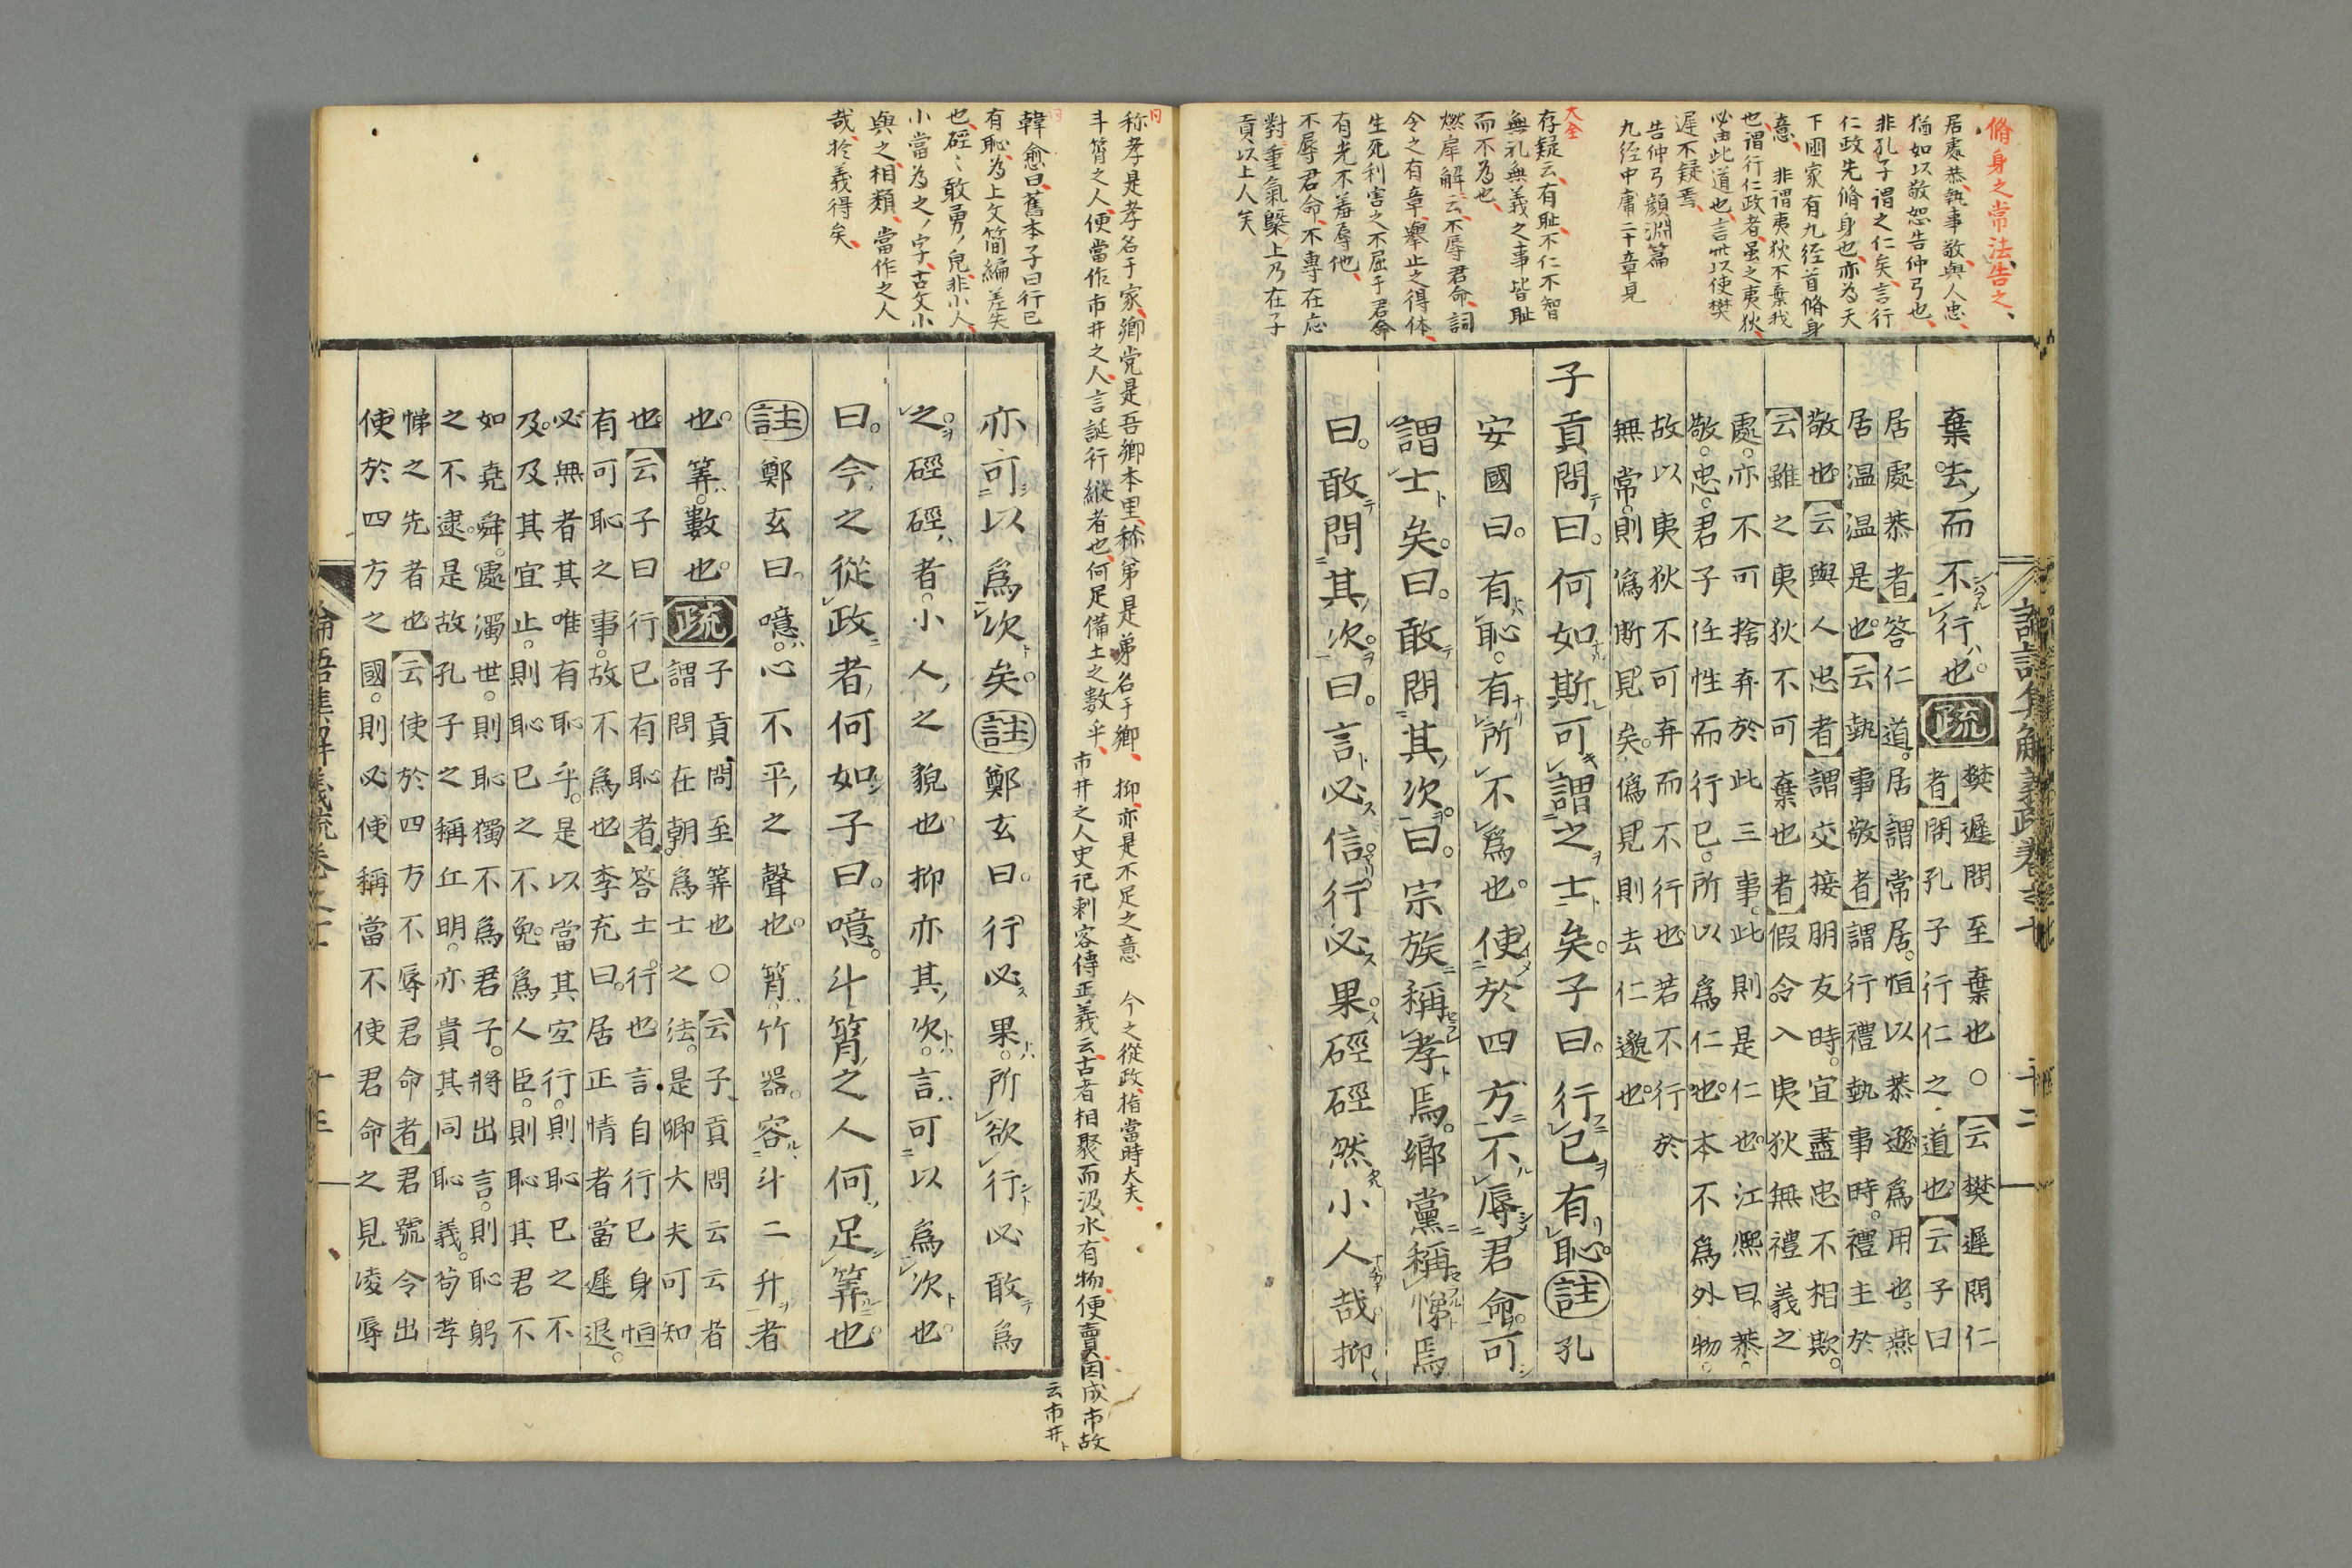 脩身之常法告之
居處恭執事敬與人忠
猶如以敬恕告仲弓也
非孔子謂之仁矣言行
仁政先脩身也亦為天
下國家有九経首脩身
意 非謂夷狄不棄我
也謂行仁政者虽之夷狄
必由此道也言世以使樊
遅不疑焉
告仲弓顔淵篇
九经中庸二十章見
大全
存疑云有耻不仁不智
無礼無義之事皆耻
而不為也
燃岸解云不辱君命詞
令之有章舉止之得体
生死利害之不屈于君命
有光不羞辱他
不辱君命不専在応
對重氣槩上乃在子
貢以上人矣
棄去而不行也疏樊遲問至棄也○云樊遲問仁
者問孔子行仁之道也云子曰
居處恭者答仁道居謂常居恒以恭遜爲用也燕
居温温是也云執事敬者謂行禮執事時禮主於
敬也云與人忠者謂交接朋友時宜盡忠不相欺
云雖之夷狄不可棄也者假令入夷狄無禮義之
處亦不可捨弃於此三事此則是仁也江熈曰恭
敬忠君子任性而行已所以爲仁也本不爲外物
故以夷狄不可弃而不行也若不行於
無常則僞斯見矣僞見則去仁邈也
子貢問曰何如斯可謂之士矣子曰行已有恥註孔
安國曰有恥有所不爲也使於四方不辱君命可
謂士矣曰敢問其次曰宗族稱孝焉鄉黨稱悌焉
曰敢問其次曰言必信行必果硜硜然小人哉抑
称孝是孝名于家鄉党是吾鄉本里称弟是弟名于鄉 抑亦是不足之意 今之從政指當時大夫
斗筲之人便當作市井之人言誕行縱者也何足備士之數乎 市井之人史記刺客傳正義云古者相聚而汲水有物便賣因成市故
云市井ト
韓愈曰舊本子曰行已
有恥為上文簡編差失
也硜ミ敢勇ノ皃非小人
小當為之ノ字古文小
與之相類當作之人
哉於義得矣
亦可以爲次矣註鄭玄曰行必果所欲行必敢爲
之硜硜者小人之貌也抑亦其次言可以爲次也
曰今之從政者何如子曰噫斗筲之人何足筭也
註鄭玄曰噫心不平之聲也筲竹器容斗二升者
也筭數也疏子貢問至筭也○云子貢問云云者
謂問在朝爲士之法是卿大夫可知
也云子曰行已有恥者答士行也言自行已身恒
有可恥之事故不爲也李充曰居正情者當遲退
必無者其唯有恥乎是以當其宜行則恥已之不
及及其宜止則恥已之不免爲人臣則恥其君不
如堯舜處濁世則恥獨不爲君子將出言則恥躬
之不逮是故孔子之稱丘明亦貴其同恥義苟孝
悌之先者也云使於四方不辱君命者君號令出
使於四方之國則必使稱當不使君命之見凌辱
論語集解義疏卷之七 十三